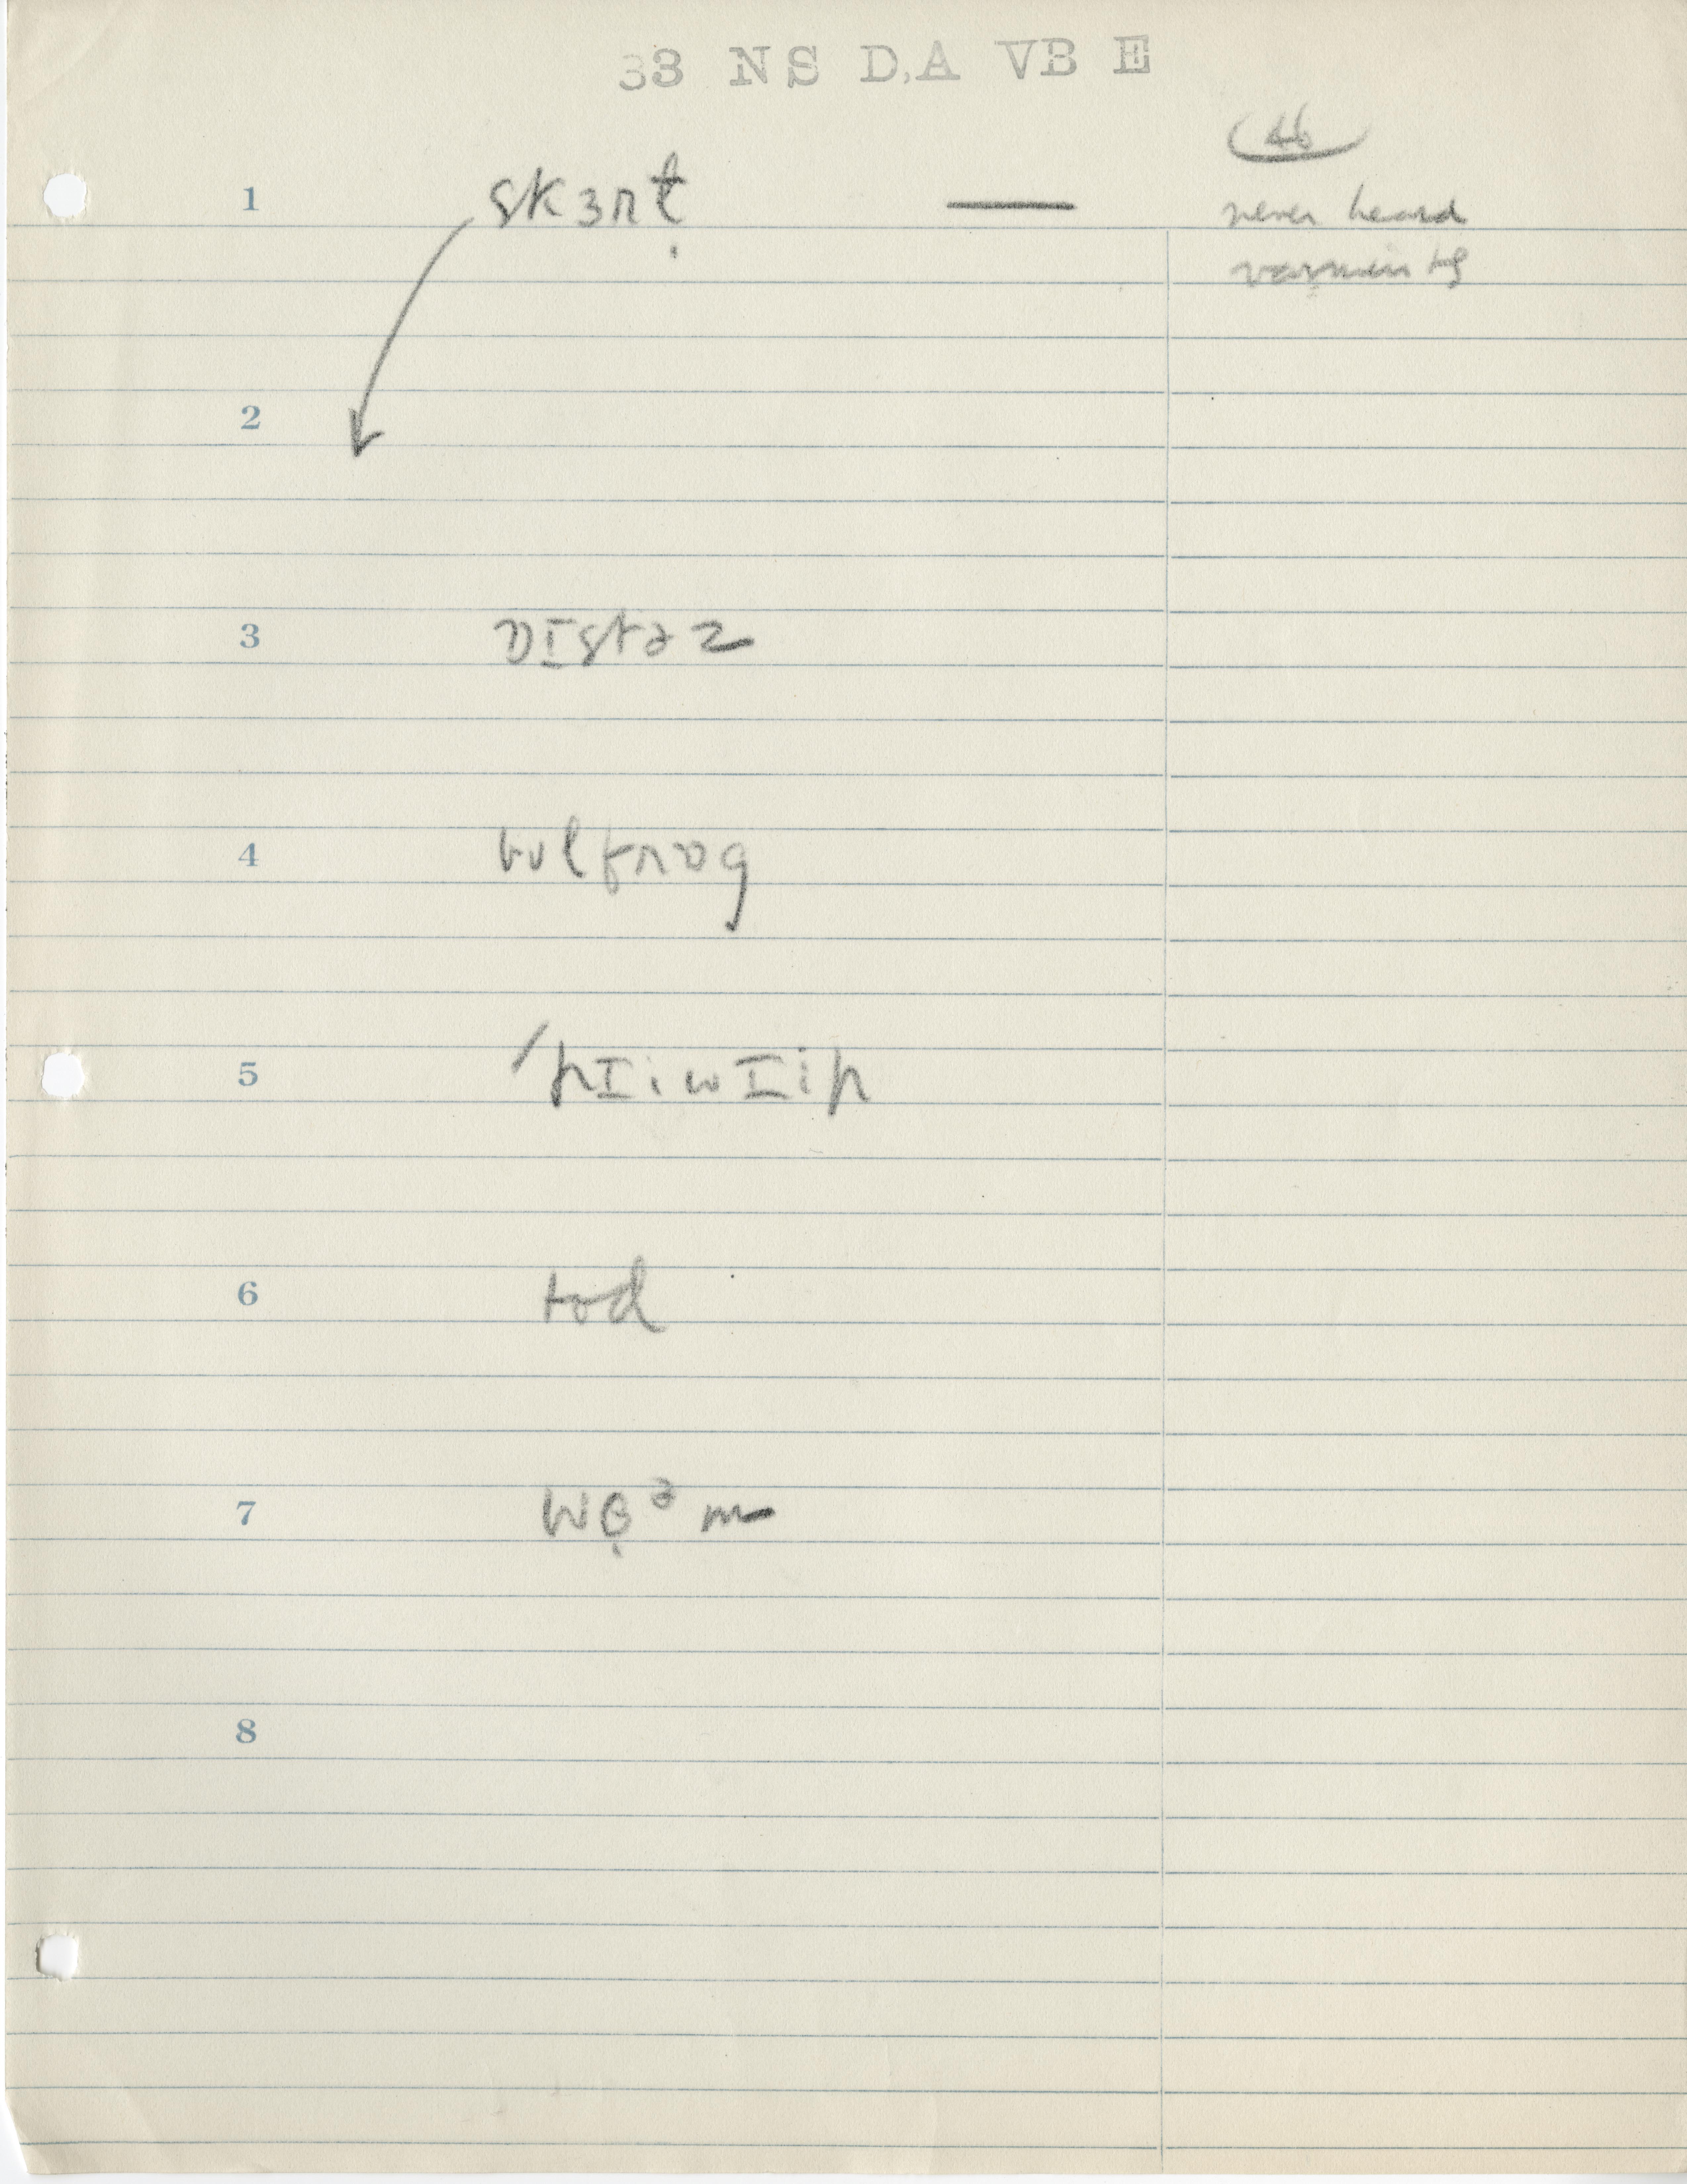 33 NS D,A VB E
46
1 skɜrt̬ — never heard
varmints
2
3 ɒɪstəz
4 bʊlfrɒg
5 'pɪiwɪip
6 tod
7 wɵ̣ᵊm
8